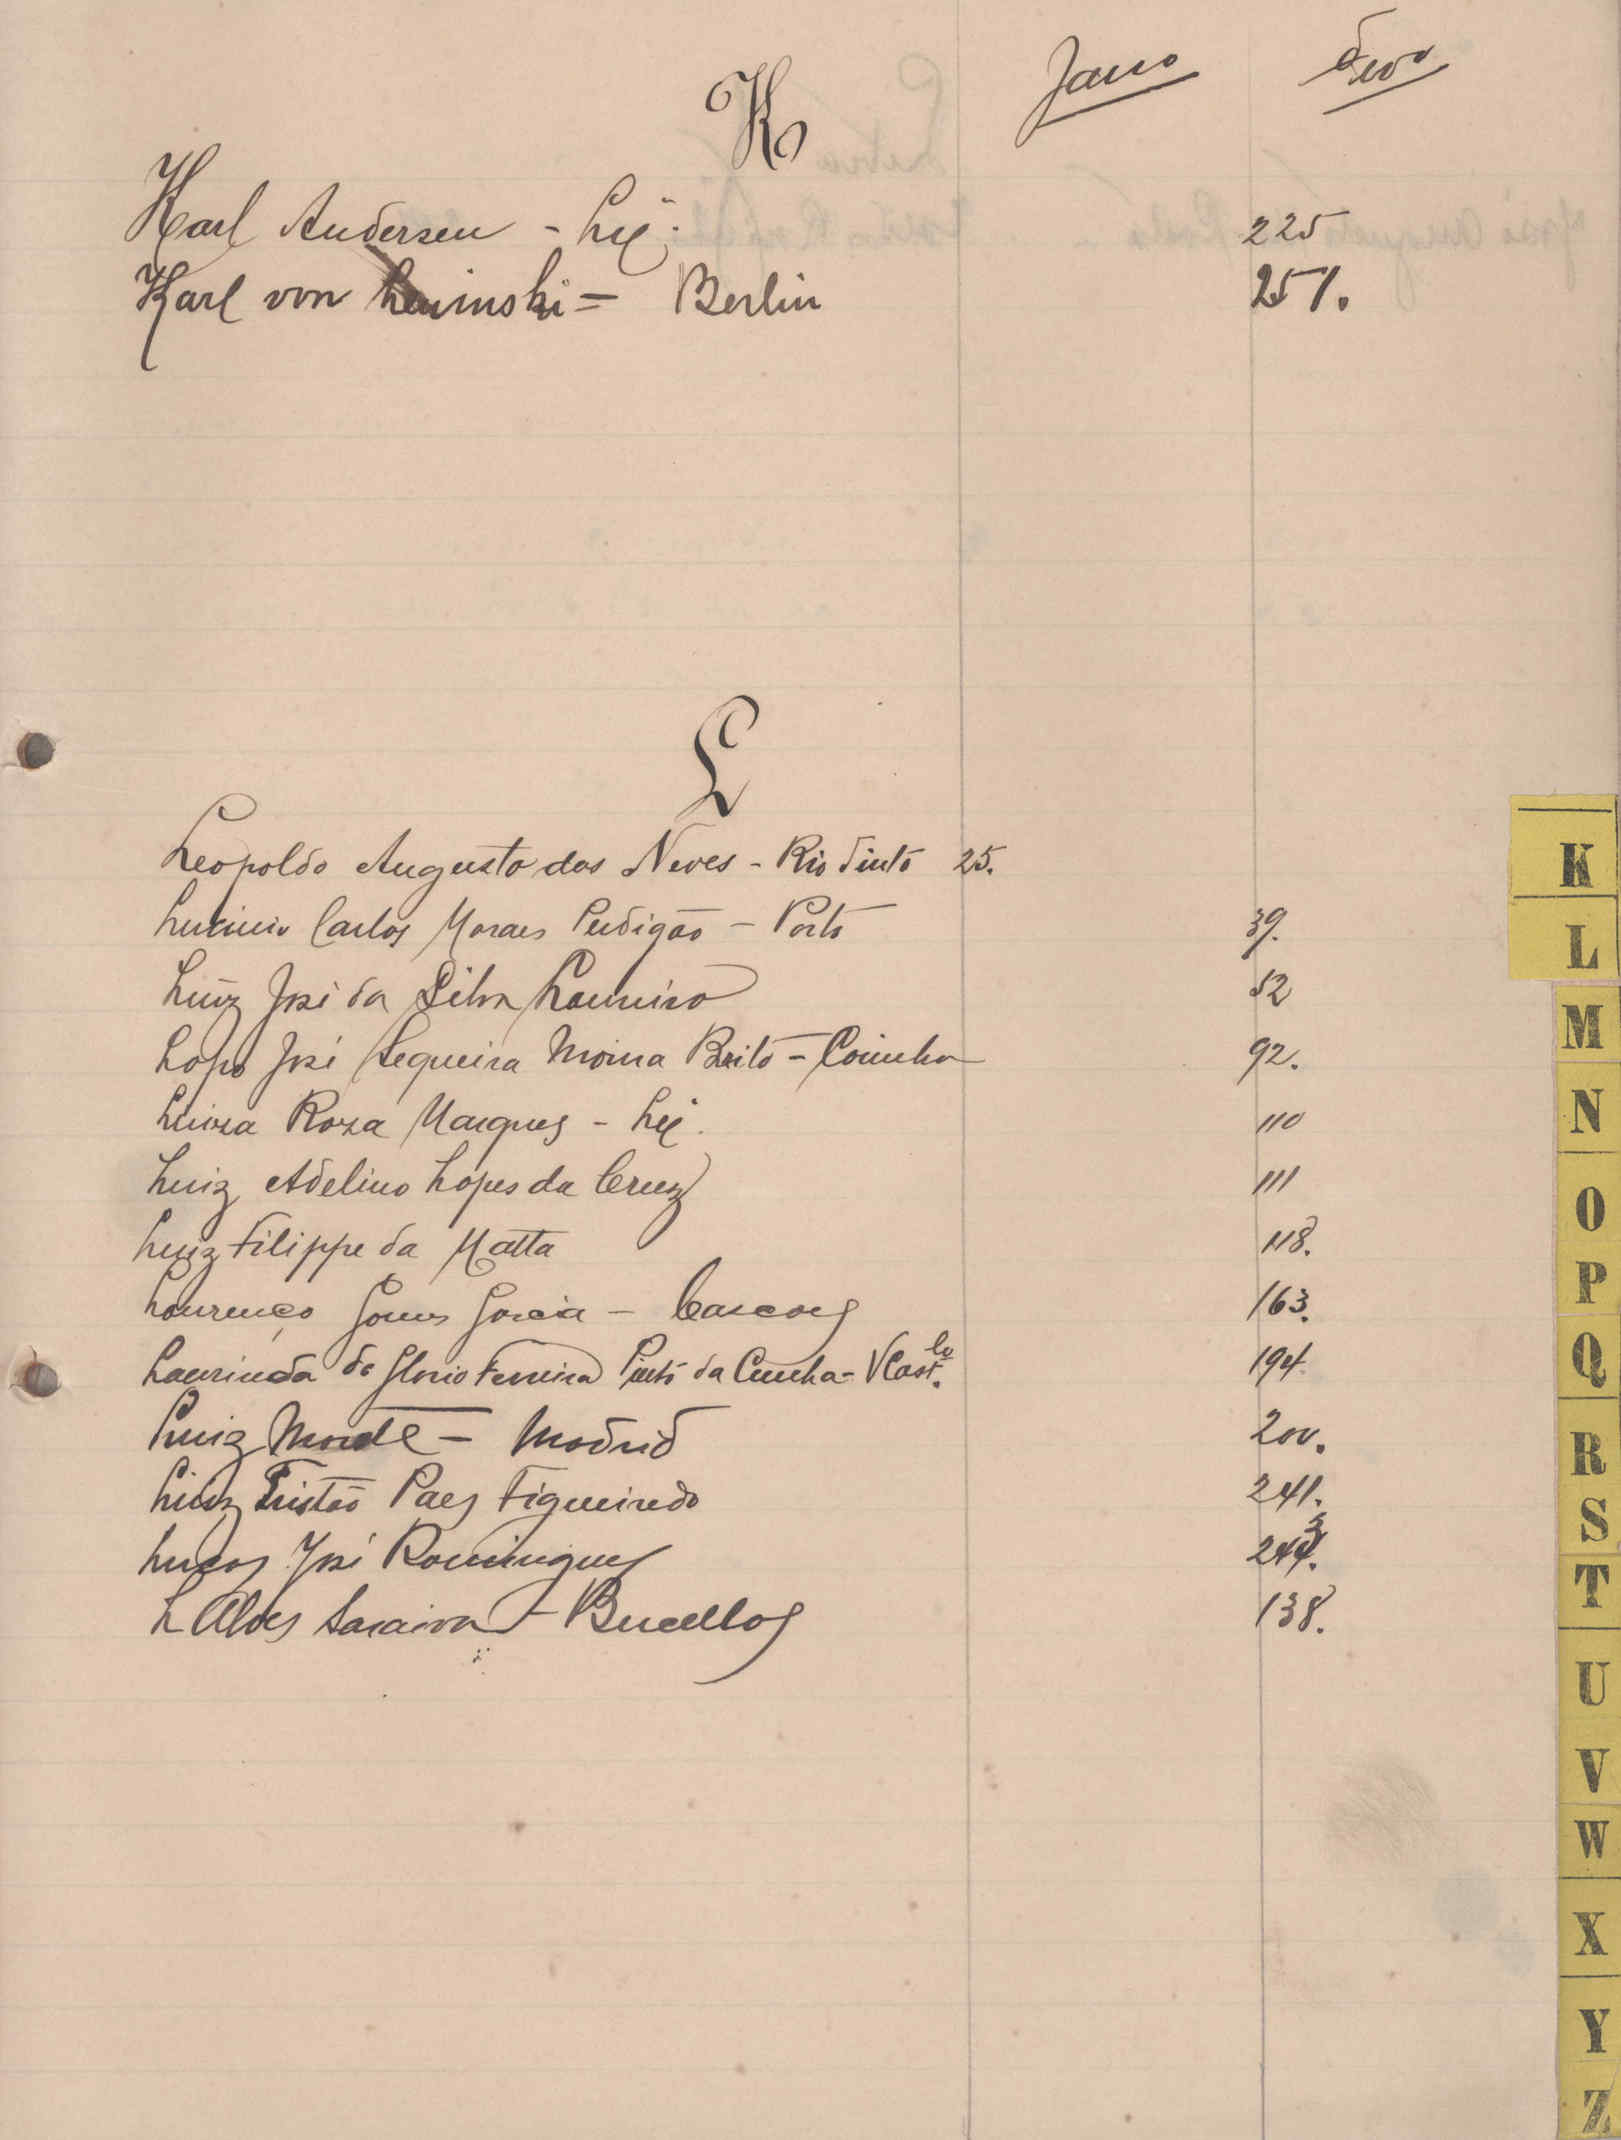 Janro Fevro
K
Karl Andersen - Lix. 225
Karl von Lewinski = Berlin 251.
L
Leopoldo Augusto das Neves - Rio Tinto 25.
Lucinio Carlos Moraes Perdigão - Porto 39.
Luiz José da Silva Loureiro 52
Lopo José Sequeira Moina Brito - Coimbra 92.
Luiza Roza Marques - Lix. 110
Luiz Adelino Lopes da Cruz 111
Luiz Filippe da Matta 118.
Lourenço Gomes Garcia - Cascaes 163.
Laurinda da Gloria Ferreira Pinto da Cunha - V Cast.lo 194.
Luiz - Madrid 200.
Luiz Tristão Paes Figueiredo 241.
Lucas José Domingues
L Alves Saraiva - Bucellas 138.
K
L
M
N
O
P
Q
R
S
T
U
V
W
X
Y
Z